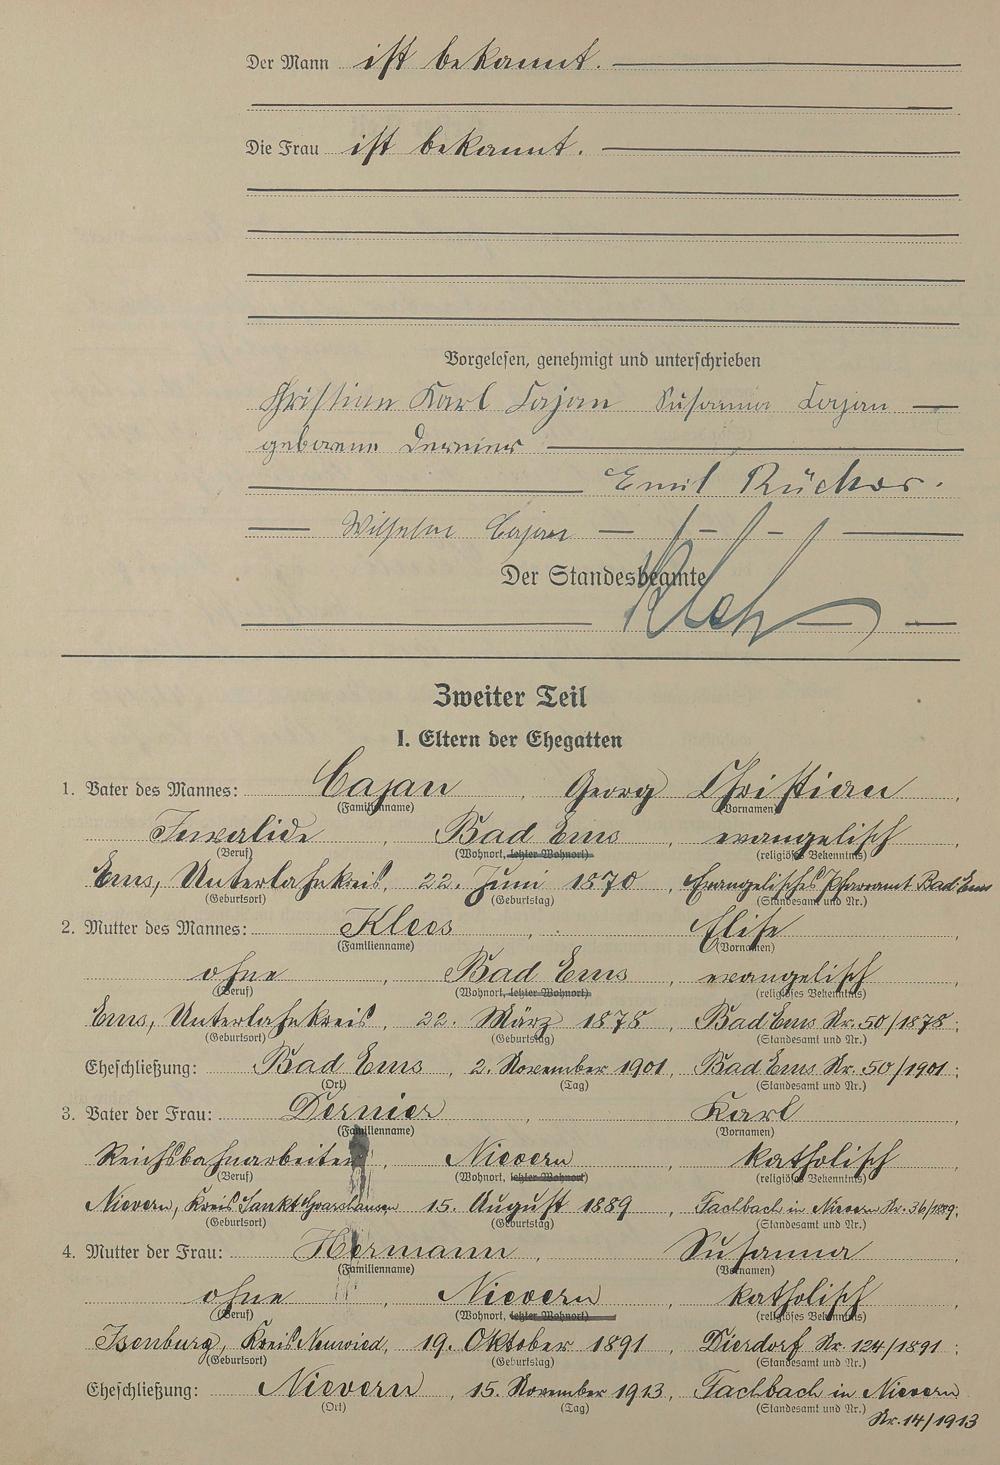 Der Mann ist bekannt.
Die Frau ist bekannt.
Vorgelesen, genehmigt und unterschrieben
Christian Karl Cajan Susanna Cajan
geborene Dernier
Emil Rücker.
Wilhelm Cajan
Der Standesbeamte
Zweiter Teil
I. Eltern der Ehegatten
1. Vater des Mannes: Cajan, Georg Christian,
(Familienname) (Vornamen)
Invalide, Bad Ems, evangelisch
(Beruf) (Wohnort, letzter Wohnort) (religiöses Bekenntnis)
Ems, Unterlahnkreis, 22. Juni 1870, Evangelisches Pfarramt Bad Ems
(Geburtsort) (Geburtstag) (Standesamt und Nr.)
2. Mutter des Mannes: Klees, Elise,
(Familienname) (Vornamen)
ohne, Bad Ems, evangelisch
(Beruf) (Wohnort, letzter Wohnort) (religiöses Bekenntnis)
Ems, Unterlahnkreis, 22. März 1878, Bad Ems Nr. 50/1878;
(Geburtsort) (Geburtstag) (Standesamt und Nr.)
Eheschließung: Bad Ems, 2. November 1901, Bad Ems Nr. 50/1901;
(Ort) (Tag) (Standesamt und Nr.)
3. Vater der Frau: Dernier, Karl,
(Familienname) (Vornamen)
Reichsbahnarbeiter, Nievern, katholisch
(Beruf) (Wohnort, letzter Wohnort) (religiöses Bekenntnis)
Nievern, Kreis Sankt Goarshausen 15. August 1889, Fachbach in Nievern Nr. 36/1889;
(Geburtsort) (Geburtstag) (Standesamt und Nr.)
4. Mutter der Frau: Hermann, Susanna,
(Familienname) (Vornamen)
ohne, Nievern, katholisch,
(Beruf) (Wohnort, letzter Wohnort) (religiöses Bekenntnis)
Isenburg, Kreis Neuwied, 19. Oktober 1891, Dierdorf Nr. 124/1891;
(Geburtsort) (Geburtstag) (Standesamt und Nr.)
Eheschließung: Nievern, 15. November 1913, Fachbach in Nievern
(Ort) (Tag) (Standesamt und Nr.)
Nr. 14/1913